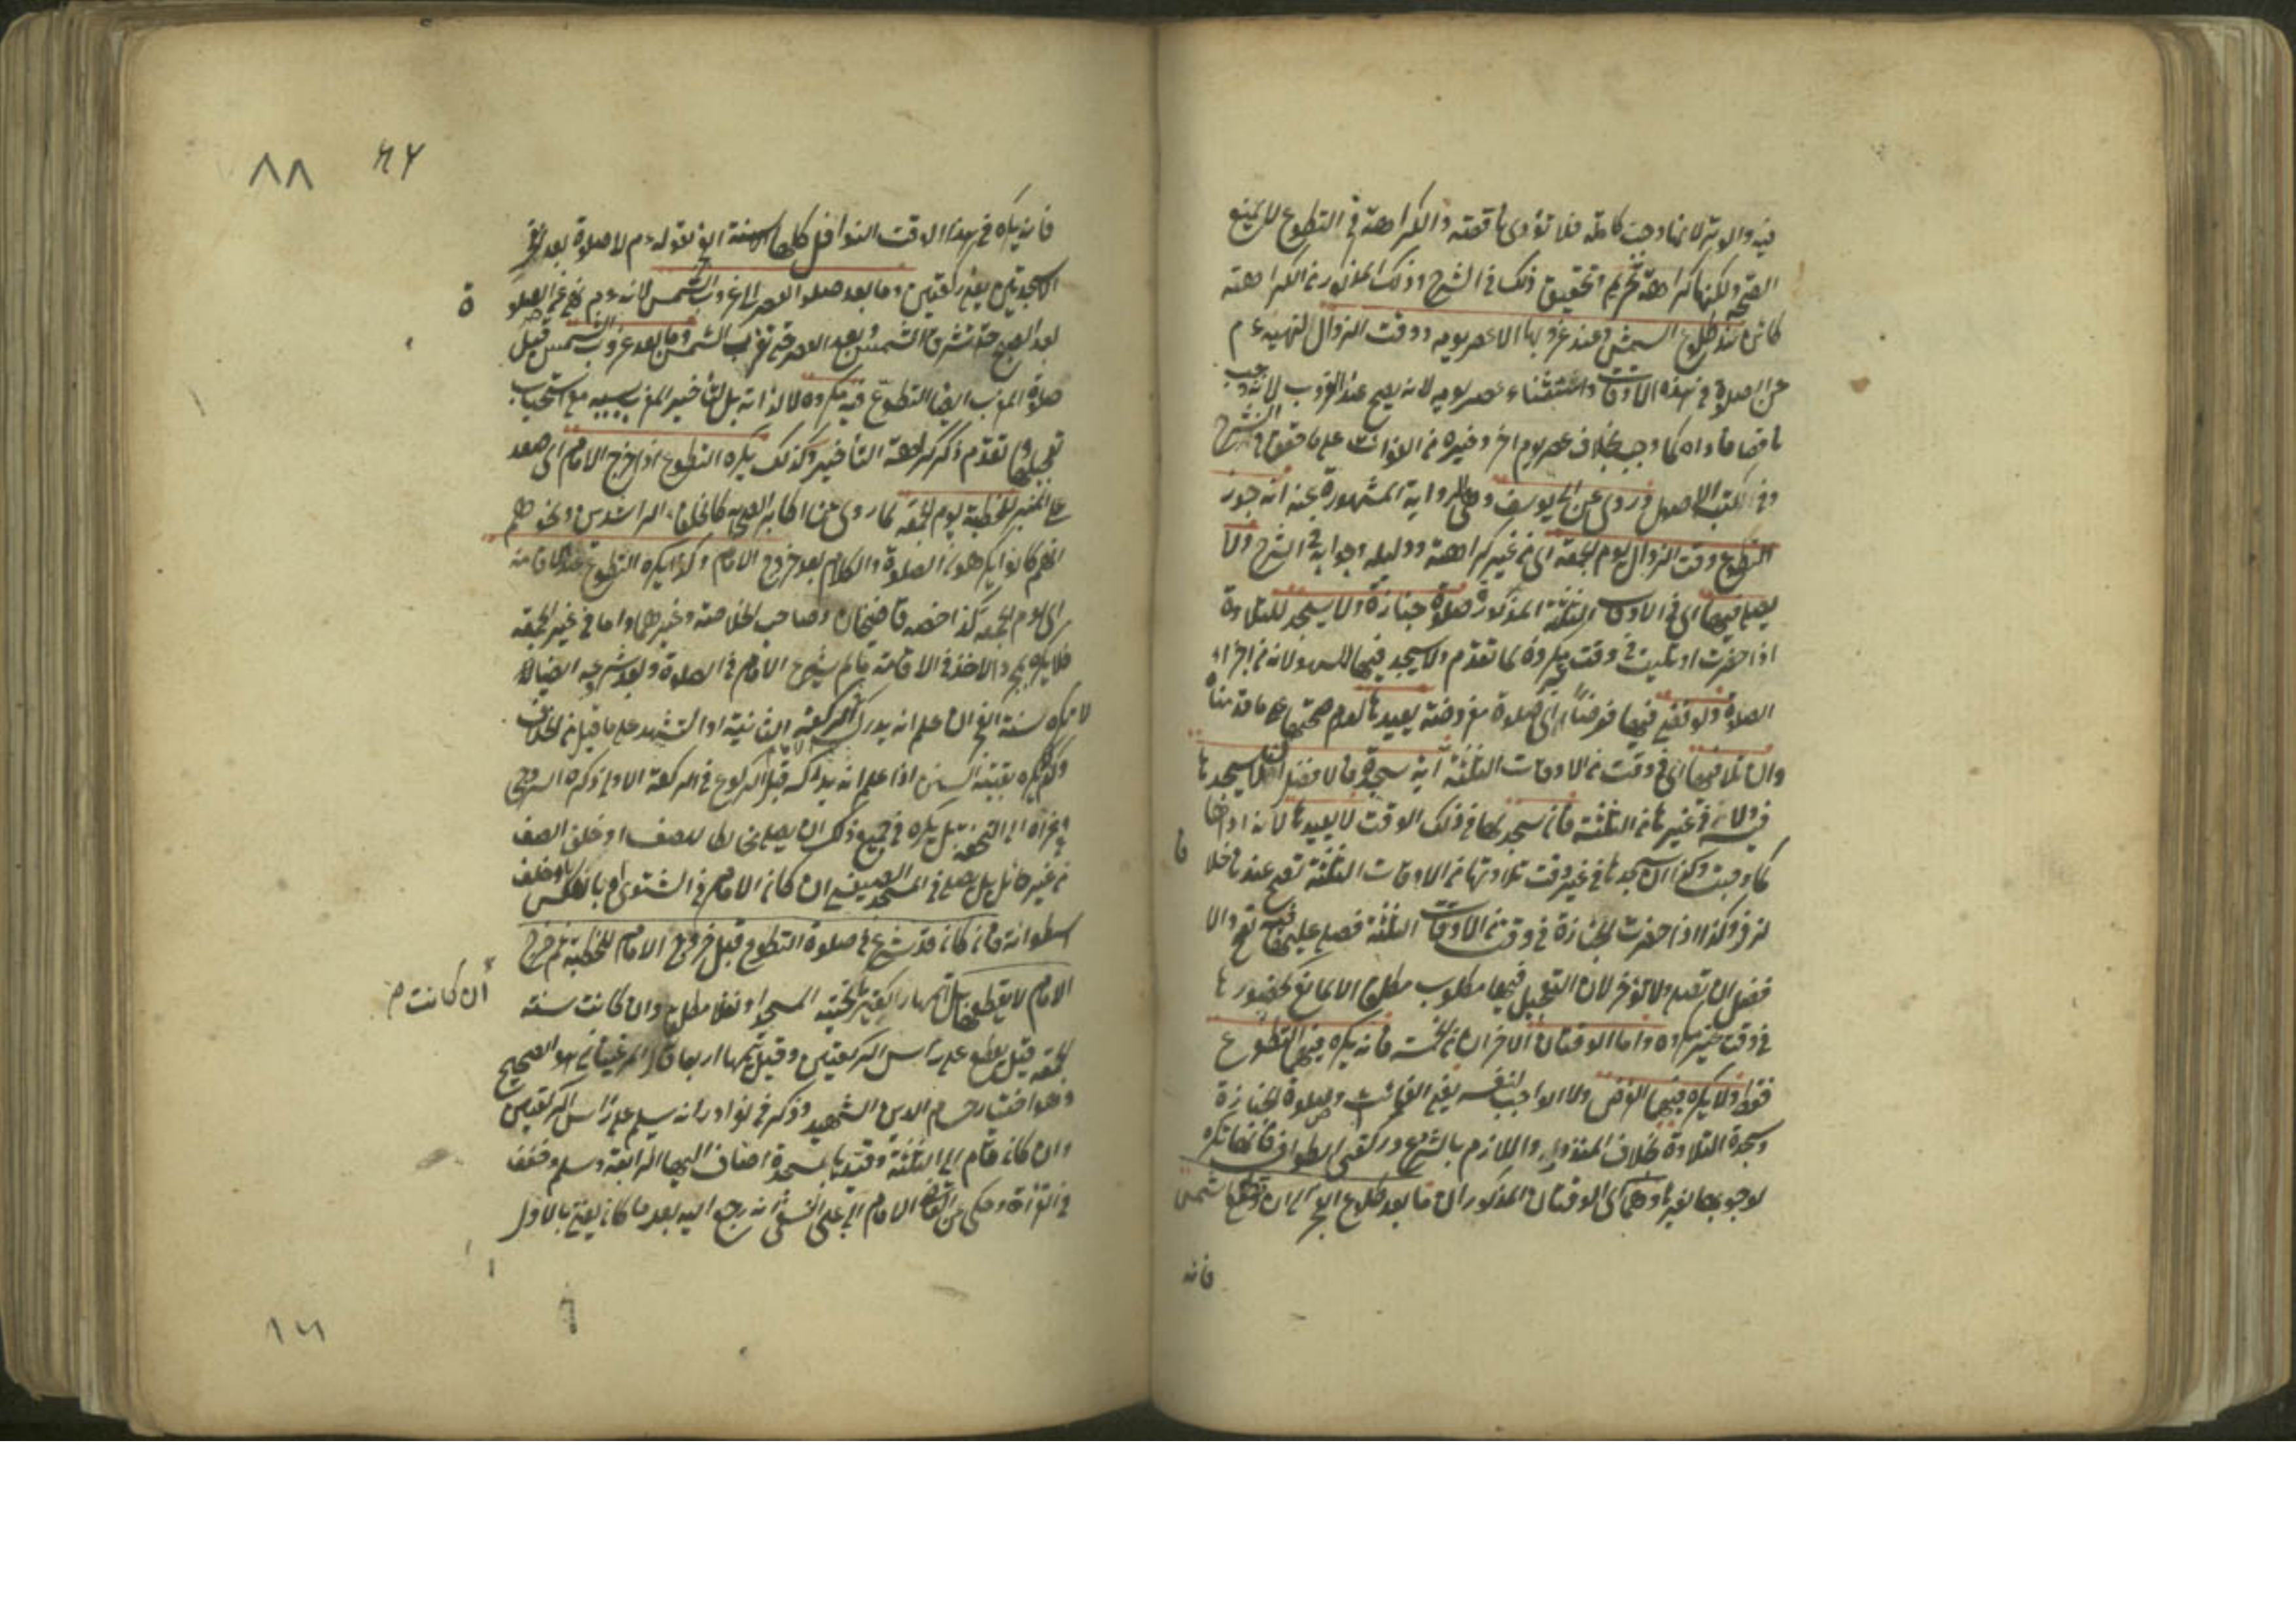 فيه والوتر لانها وجبت كاملة فلا تؤدى ناقصة والكراهة في التطوع لا تمنع
الصحة ولكنها كراهة تحريم وتحقيق ذلك في الشرح وذلك المذكور من الكراهة
كائن عند طلوع الشمس وعند غروبها الا عصر يومه ووقت الزوال لنهيه ءم
عن الصلوة في هذه الاوقات واستثناء عصر يومه لانه يصح عند الغروب لانه وجب
ناقصا فاداه كما وجب بخلاف عصر يوم اخر وغيره من الفوائت على ما حقق في الشرح
وفي كتب الاصول وروى عن ابي يوسف وهى الرواية المشهورة عنه انه جوز
التطوع وقت الزوال يوم الجمعة اى من غير كراهة ودليله وجوابه في الشرح ولا
يصلى فيها اى في الاوقات الثلثة المذكورة صلوة جنازة ولا يسجد للتلاوة
اذا حضرت او تليت في وقت غير مكروه لما تقدم ولا يسجد فيها للسهو لانه من اجزاء
الصلوة ولو قضى فيها فرضا اى صلوة مفروضة يعيدها لعدم صحتها على ما قدمناه
وان تلا فيها اى في وقت من الاوقات الثلثة آية سجدة فالافضل ان لا يسجدها
فيه ولا في غيرها من الثلثة فان سجدها في ذلك الوقت لا يعيدها لانه اداها
كما وجبت وكذا ان سجدها في غير وقت تلاوتها من الاوقات الثلثة تصح عندنا خلافا
لزفر وكذا اذا حضرت الجنازة في وقت من الاوقات الثلثة فصلى عليها فيه تصح والا
فضل ان تصلى ولا تؤخر لان التعجيل فيها مطلوب مطلقا الا لمانع كحضورها
في وقت غير مكروه واما الوقتان الاخران من الخمسة فانه يكره فيهما التطوع
فقط ولا يكره فيهما الفرض ولا الواجب لنفسه يعني الفوائت وصلوة الجنازة
وسجدة التلاوة بخلاف المنذور واللازم بالشروع وركعتى الطواف فانها تكره
لوجوبها لغيرها وهما اى الوقتان المذكوران ما بعد طلوع الفجر الى ان ترتفع الشمس
فانه
٨٨
فانه يكره في هذا الوقت النوافل كلها الا سنة الفجر لقوله ءم لا صلوة بعد الفجر
الا سجدتين يعني ركعتين وما بعد صلوة العصر الى غروب الشمس لانه ءم نهى عن الصلوة
بعد الصبح حتى تشرق الشمس وبعد العصر حتى تغرب الشمس وما بعد غروب الشمس قبل
صلوة المغرب ايضا التطوع فيه مكروه لا لذاته بل لتأخير المغرب بسببه مع استحباب
تعجيلها وقد تقدم ذكر كراهة التأخير وكذلك يكره التطوع اذا خرج الامام اى صعد
على المنبر للخطبة يوم الجمعة لما روى عن اكابر الصحابة كالخلفاء الراشدين ونحوهم
انهم كانوا يكرهون الصلوة والكلام بعد خروج الامام وكذا يكره التطوع عند الاقامة
اى يوم الجمعة كذا خصه قاضيخان وصاحب الخلاصة وغيرهما واما في غير الجمعة
فلا يكره بمجرد الاخذ في الاقامة ما لم يشرع الامام في الصلوة وبعد شروعه ايضا
لا تكره سنة الفجر ان علم انه يدرك الركعة الثانية او التشهد على ما قيل من الخلاف
وكذا يكره بقية السنن اذا علم انه يدركه قبل الركوع في الركعة الاولى ذكره السروجى
وعزاه الى التحفة بل يكره في جميع ذلك ان يصلى مخالطا للصف او خلف الصف
من غير حائل بل يصلى في المسجد الصيفى ان كان الامام في الشتوى او بالعكس او خلف
اسطوانة فان كان قد شرع في صلوة التطوع قبل خروج الامام للخطبة ثم خرج
الامام لا يقطعها بل يتمها ركعتين ان كانت تحية المسجد او نفلا مطلقا وان كانت سنة
الجمعة قيل يقطع على رأس الركعتين وقيل يتمها اربعا قال المرغينانى هو الصحيح
وهو اختيار حسام الدين الشهيد وذكر في نوادر انه يسلم على رأس الركعتين
وان كان قام الى الثلثة وقيدها بسجدة اضاف اليها الرابعة وسلم وخفف
في القراءة وحكى عن القاضى الامام ابى على النسفى انه رجع اليه بعد ما كان يفتى بالاول
ان كانت